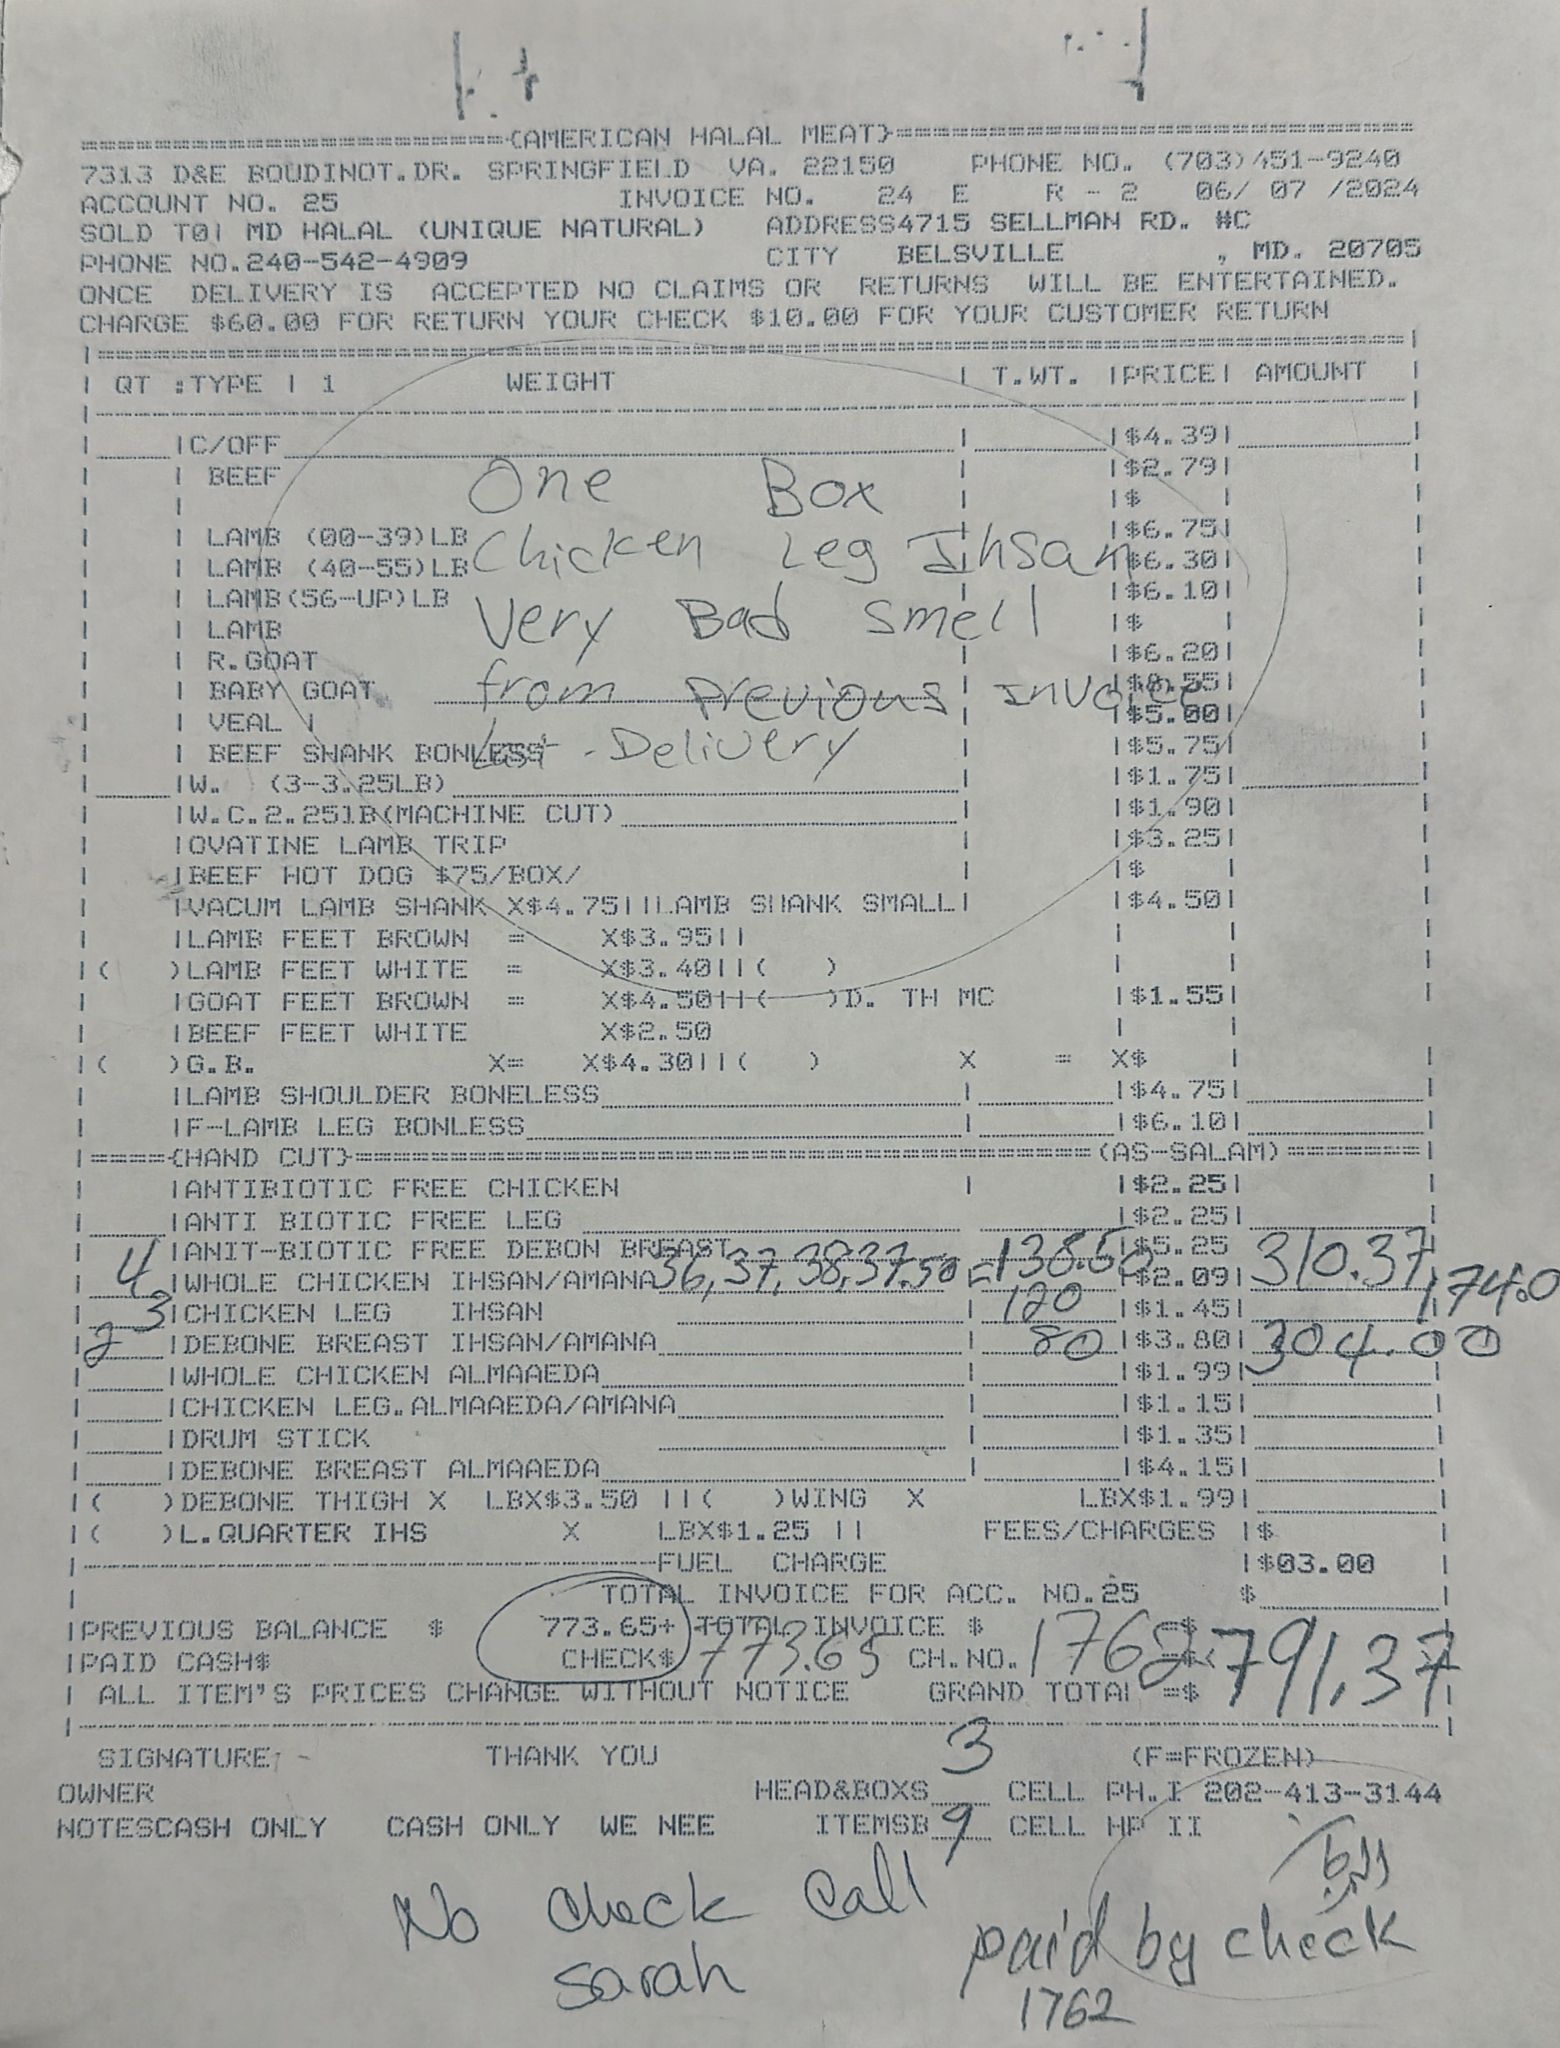 {AMERICAN HALAL MEAT}
7313 D&E BOUDINOT.DR. SPRINGFIELD VA. 22150 PHONE NO. (703)451-9240
ACCOUNT NO. 25 INVOICE NO. 24 E R - 2 06/ 07 /2024
SOLD TO| MD HALAL (UNIQUE NATURAL) ADDRESS4715 SELLMAN RD. #C
PHONE NO.240-542-4909 CITY BELSVILLE , MD. 20705
ONCE DELIVERY IS ACCEPTED NO CLAIMS OR RETURNS WILL BE ENTERTAINED.
CHARGE $60.00 FOR RETURN YOUR CHECK $10.00 FOR YOUR CUSTOMER RETURN
QT :TYPE | 1 WEIGHT | T.WT. |PRICE| AMOUNT
|C/OFF |$4.39|
| BEEF |$2.79|
One Box
|$ |
| LAMB (00-39)LB |$6.75|
Chicken Leg Ihsan
| LAMB (40-55)LB |$6.30|
| LAMB(56-UP)LB |$6.10|
Very Bad smell
| LAMB |$ |
| R.GOAT |$6.20|
from previous invoice
| BABY GOAT
| VEAL | |$5.00|
Last - Delivery
| BEEF SHANK BONLESS |$5.75|
|W. (3-3.25LB) |$1.75|
|W.C.2.25lB(MACHINE CUT) |$1.90|
|OVATINE LAMB TRIP |$3.25|
|BEEF HOT DOG $75/BOX/ |$ |
|VACUM LAMB SHANK X$4.75||LAMB SHANK SMALL| |$4.50|
|LAMB FEET BROWN = X$3.95||
|( )LAMB FEET WHITE = X$3.40||( )
|GOAT FEET BROWN = X$4.50||( )D. TH MC |$1.55|
|BEEF FEET WHITE X$2.50
|( )G.B. X= X$4.30||( ) X = X$ |
|LAMB SHOULDER BONELESS |$4.75|
|F-LAMB LEG BONLESS |$6.10|
|=====(HAND CUT)=====(AS-SALAM)=======|
|ANTIBIOTIC FREE CHICKEN |$2.25|
|ANTI BIOTIC FREE LEG |$2.25|
|ANIT-BIOTIC FREE DEBON BREAST |$5.25
4 |WHOLE CHICKEN IHSAN/AMANA 36, 37, 38, 37.50 = 138.50 |$2.09| 310.37
3 |CHICKEN LEG IHSAN 120 |$1.45| 174.0
2 |DEBONE BREAST IHSAN/AMANA 80 |$3.80| 304.00
|WHOLE CHICKEN ALMAAEDA |$1.99|
|CHICKEN LEG.ALMAAEDA/AMANA |$1.15|
|DRUM STICK |$1.35|
|DEBONE BREAST ALMAAEDA |$4.15|
|( )DEBONE THIGH X LBX$3.50 ||( )WING X LBX$1.99|
|( )L.QUARTER IHS X LBX$1.25 || FEES/CHARGES |$
FUEL CHARGE |$03.00
TOTAL INVOICE FOR ACC. NO.25 $
|PREVIOUS BALANCE $ 773.65+ TOTAL INVOICE $ =$
|PAID CASH$ CHECK$ 773.65 CH.NO. 1762 =$ 791.37
| ALL ITEM'S PRICES CHANGE WITHOUT NOTICE GRAND TOTAL =$
SIGNATURE THANK YOU 3 (F=FROZEN)
OWNER HEAD&BOXS CELL PH.I 202-413-3144
NOTESCASH ONLY CASH ONLY WE NEE ITEMSB 9 CELL HP II
No check call
sarah
paid by check
1762